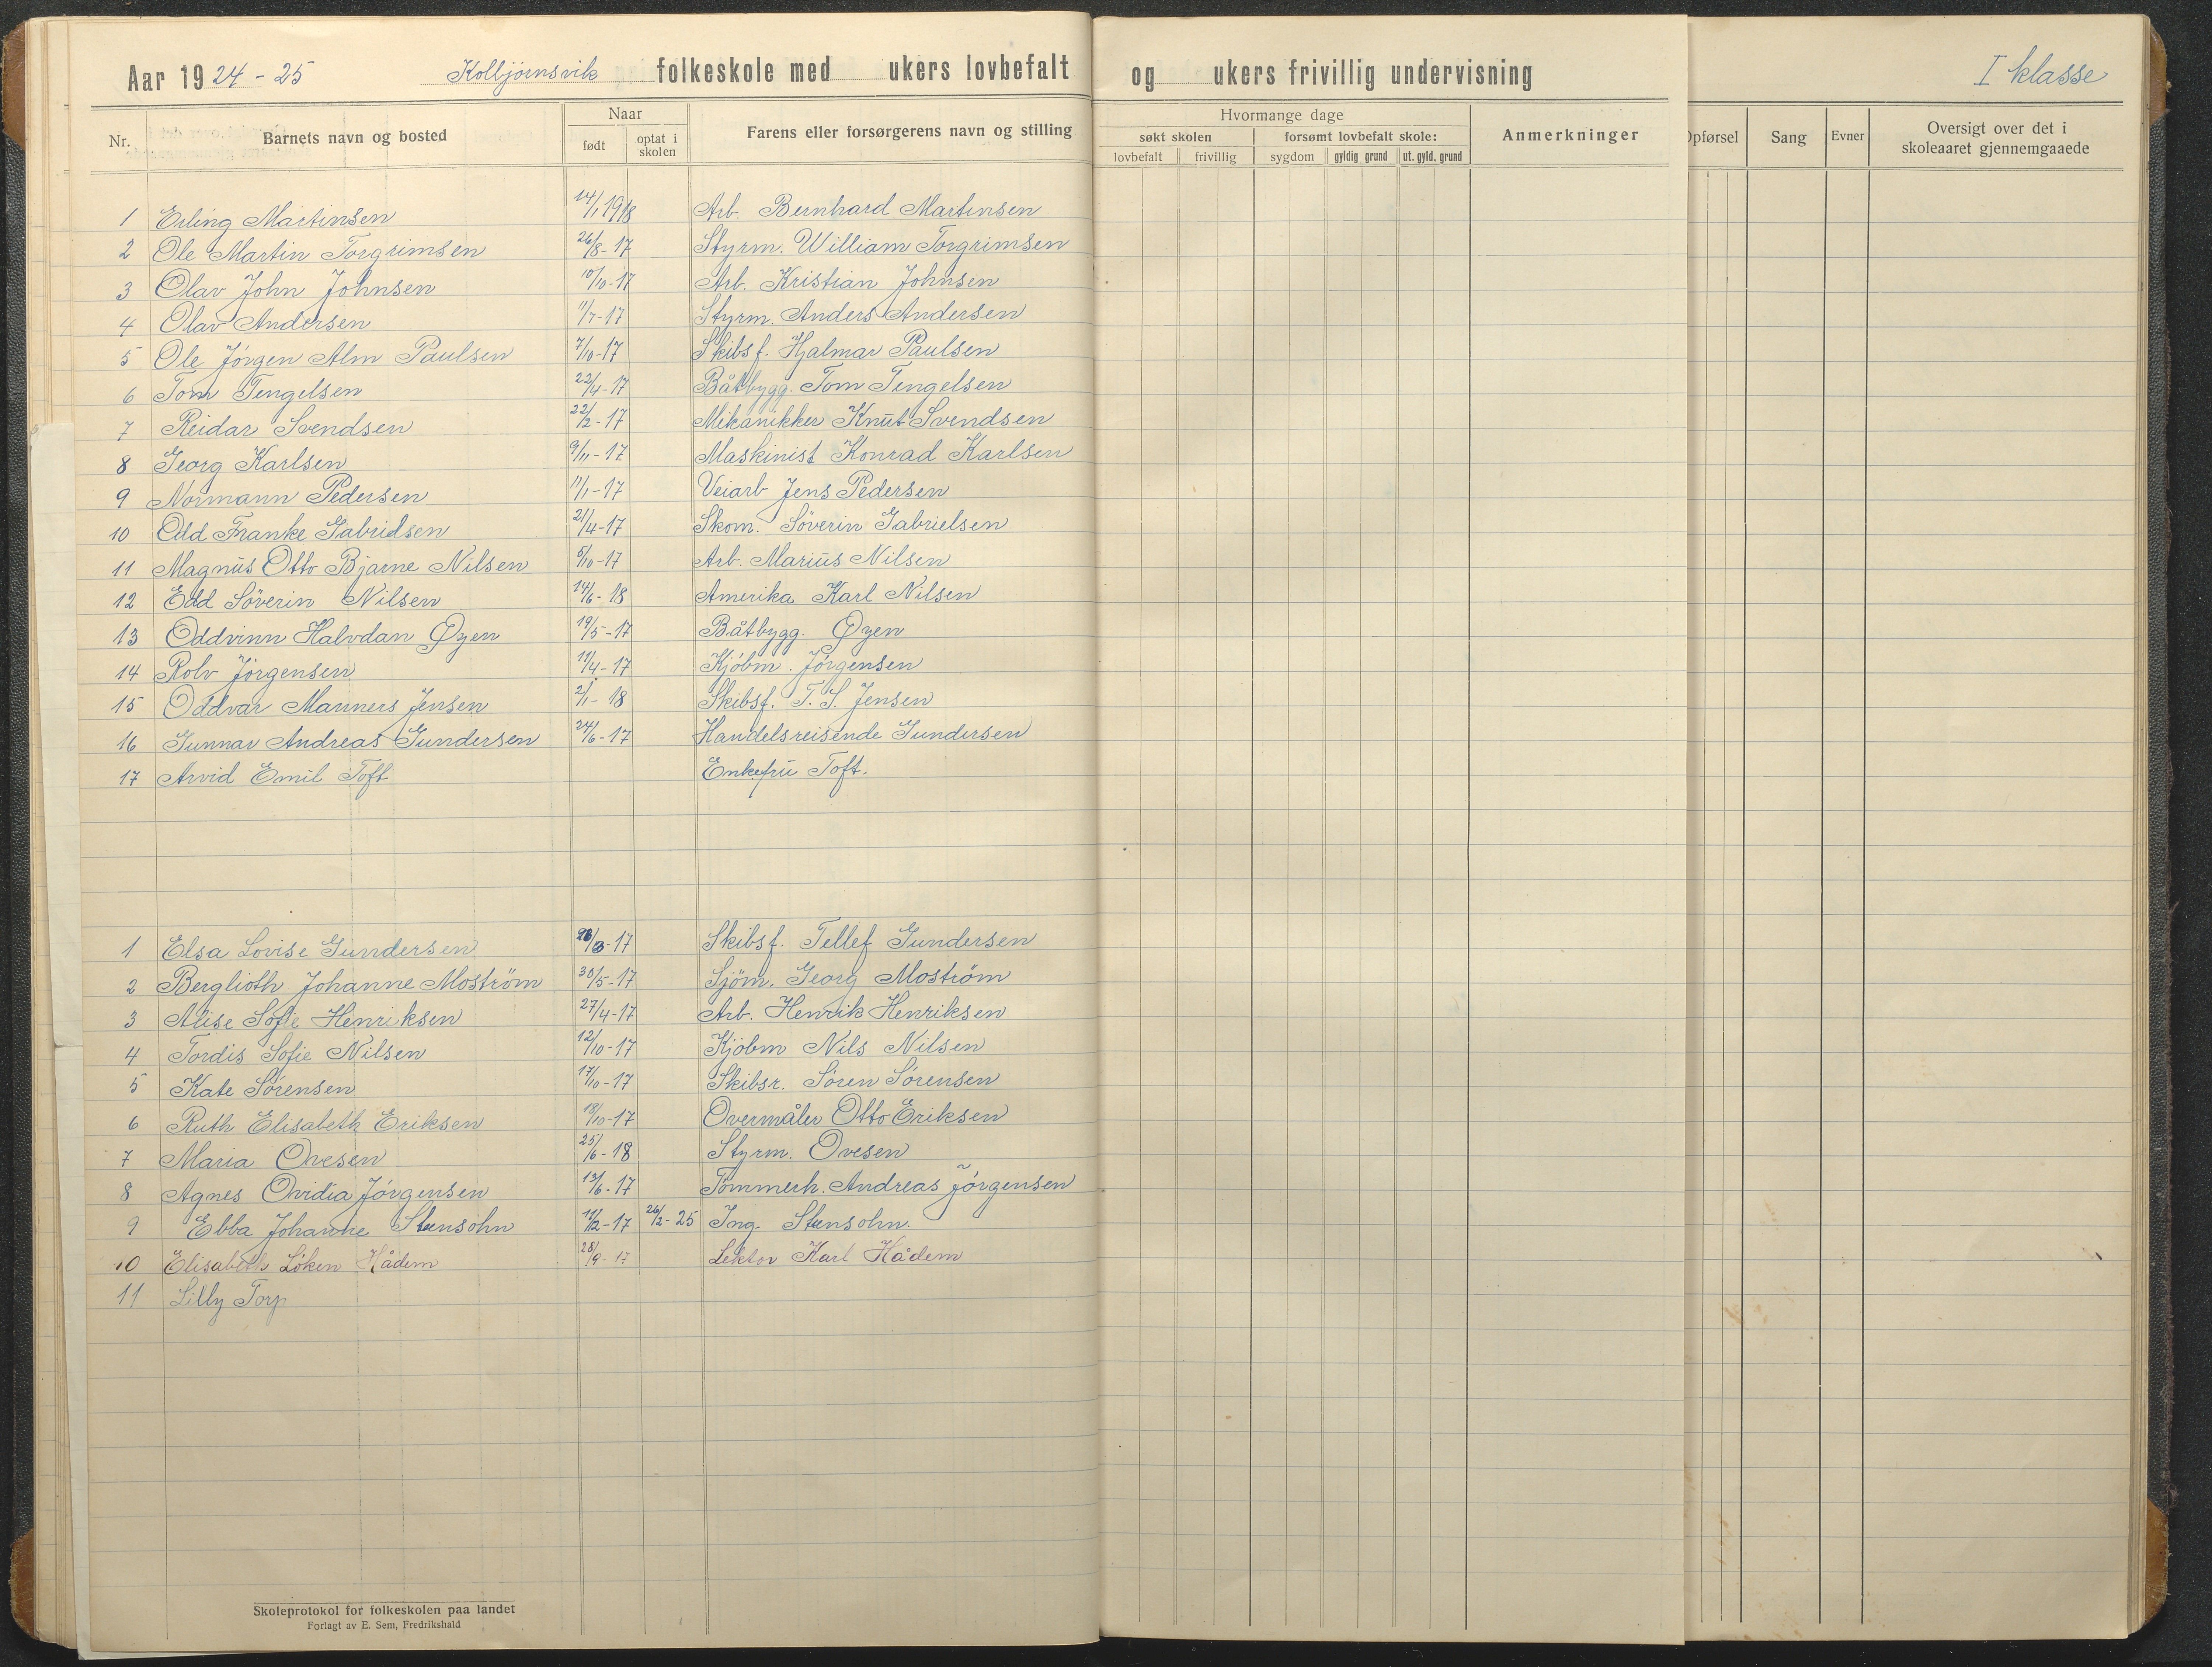 Aar 1924-25 Kolbjørnsvik folkeskole med ukers lovbefalt og ukers frivillig undervisning I klasse
Nr. Barnets navn og bosted Naar født optat i skolen Farens eller forsørgerens navn og stilling Hvormange dage søkt skolen lovbefalt frivillig forsømt lovbefalt skole: sygdom gyldig grund ut. gyld. grund Anmerkninger Opførsel Sang Evner Oversigt over det i skoleaaret gjennemgaaede
1 Erling Martinsen 14/1 1918 Arb. Bernhard Martinsen
2 Ole Martin Torgrimsen 26/8-17 Styrm. William Torgrimsen
3 Olav John Johnsen 10/10-17 Arb. Kristian Johnsen
4 Olav Andersen 11/7-17 Styrm. Anders Andersen
5 Ole Jörgen Alm Paulsen 7/10-17 Skibsf. Hjalmar Paulsen
6 Tom Tengelsen 22/4-17 Båtbygg. Tom Tengelsen
7 Reidar Svendsen 22/2-17 Mikanikker Knut Svendsen
8 Georg Karlsen 9/11-17 Maskinist Konrad Karlsen
9 Normann Pedersen 11/1-17 Veiarb Jens Pedersen
10 Odd Franke Gabrielsen 21/4-17 Skom. Söverin Gabrielsen
11 Magnus Otto Bjarne Nilsen 5/10-17 Arb. Marius Nilsen
12 Odd Söverin Nilsen 14/6-18 Amerika Karl Nilsen
13 Oddvinn Halvdan Øyen 19/5-17 Båtbygg. Øyen
14 Rolv Jörgensen 11/4-17 Kjöbm. Jörgensen
15 Oddvar Manners Jensen 2/1-18 Skibsf. T. S. Jensen
16 Gunnar Andreas Gundersen 24/6-17 Handelsreisende Gundersen
17 Arvid Emil Toft Enkefru Toft.
1 Elsa Lovise Gundersen -17 Skibsf. Tellef Gundersen
2 Berglioth Johanne Moström 30/5-17 Sjöm. Georg Moström
3 Alise Sofie Henriksen 27/4-17 Arb. Henrik Henriksen
4 Tordis Sofie Nilsen 12/10-17 Kjöbm Nils Nilsen
5 Kate Sörensen 17/10-17 Skibsr. Sören Sörensen
6 Ruth Elisabeth Eriksen 18/10-17 Overmåler Otto Eriksen
7 Maria Ovesen 25/6-18 Styrm. Ovesen
8 Agnes Ovidia Jörgensen 13/6-17 Tömmerh. Andreas Jörgensen
9 Ebba Johanne Stensohn 11/2-17 26/2-25 Ing. Stensohn.
10 Elisabeth Löken Hådem 28/9-17 Lektor Karl Hådem
11 Lilly Torp
Skoleprotokol for folkeskolen paa landet
Forlagt av E. Sem, Fredrikshald